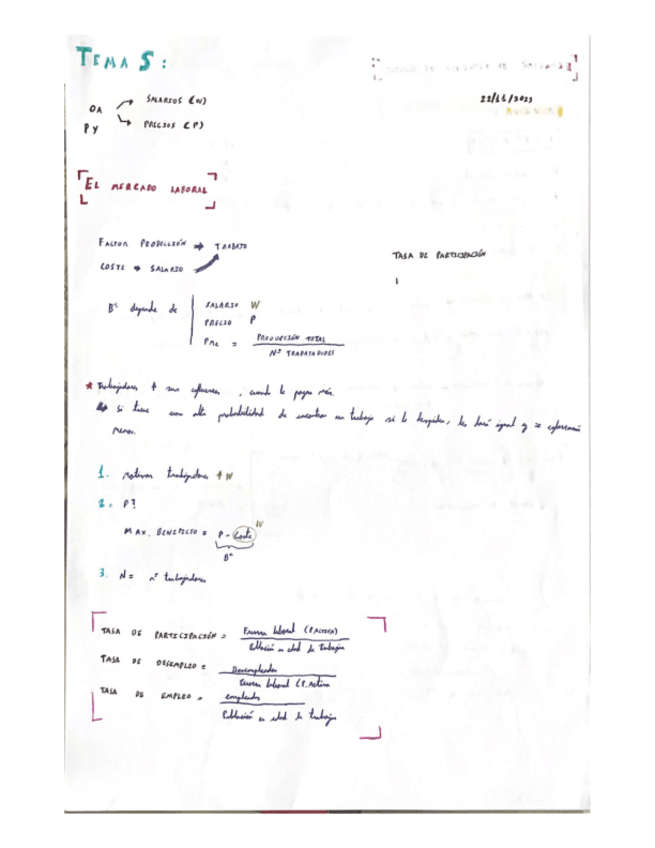 TEMA 5:
22/11/2023
OA SALARIOS (W)
PY PRECIOS (P)
EL MERCADO LABORAL
FACTOR PRODUCCIÓN → TRABAJO
COSTE → SALARIO
TASA DE PARTICIPACIÓN
Bº depende de
SALARIO W
PRECIO P
= PRODUCCIÓN TOTAL
Nº TRABAJADORES
* Trabajadores + sus esfuerzos, cuando le pagas más.
Si tiene una alta probabilidad de encontrar un trabajo si lo despiden, les dará igual y se esforzarán
menos.
1. Motivar trabajadores ↑ W
2. P?
MAX. BENEFICIO = P - Coste W
Bº
3. N = nº trabajadores
TASA DE PARTICIPACIÓN = Fuerza laboral (P.ACTIVA)
Población en edad de trabajar
TASA DE DESEMPLEO = Desempleados
Fuerza laboral (P. Activa
TASA DE EMPLEO = empleados
Población en edad de trabajar